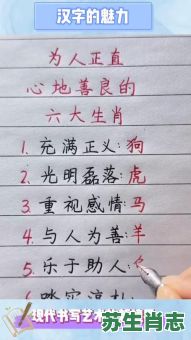 汉字的魅力
为人正直
心地善良的
六大生肖
1. 充满正义:狗
2. 光明磊落:虎
3. 重视感情:马
4. 与人为善:羊
5. 乐于助人:
现代书写艺术
苏生肖志